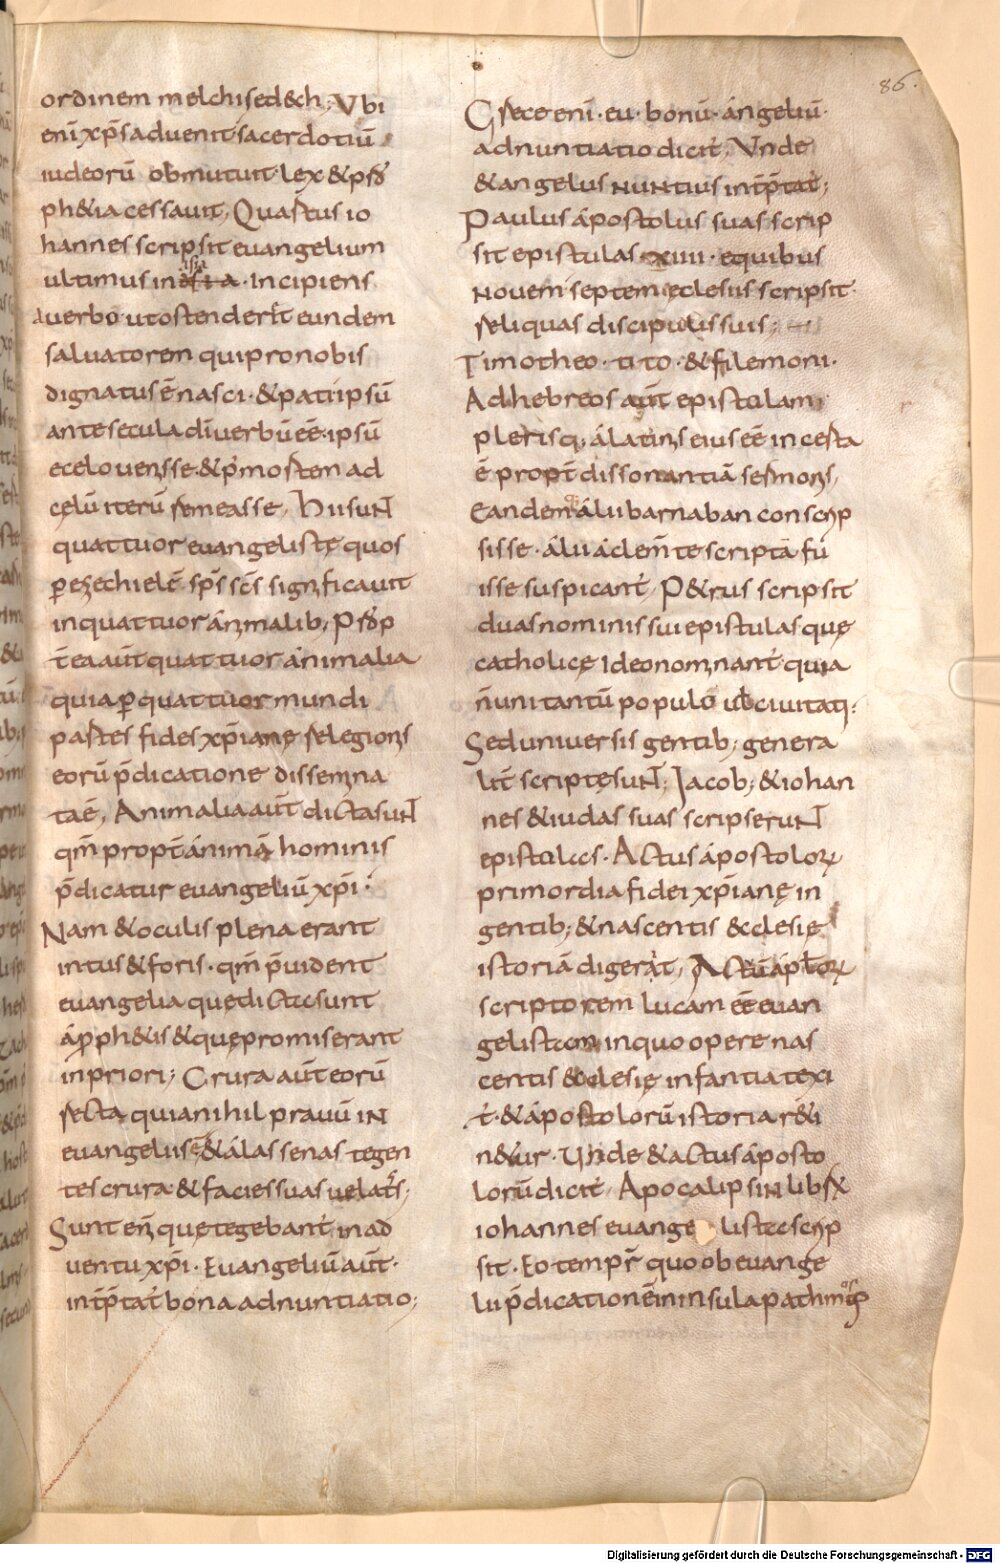 86.
ordinem melchised&ch; Vbi
enī xp̄s aduenit sacerdotiū
iudeorū obmutuit lex & pro
ph&ia cessauit, Quartus io
hannes scripsit euangelium
ultimus in asia. Incipiens
auerbo ut ostender&̄ eundem
saluatorem qui pro nobis
dignatus ē nasci. & pati ipsū
ante secula dī uerbū eē. ipsū
e celo uenisse. & p̄ mortem ad
cęlū iterū remeasse, Hii suNT
quattuor euangelistę quos
ꝑ ezechielē sp̄s sc̄s significauit
in quattuor animalib; Prop
t̄ ea aūt quattuor animalia
quia ꝑ quattuor mundi
partes fides xp̄ianę religionis
eorū p̄dicatione dissemina
ta ē, Animalia aūt dicta suNT
qm̄ propt̄ animā hominis
p̄dicatur euangeliū xp̄i.
Nam & oculis plena erant
intus & foris. qm̄ p̄uident
euangelia que dicta sunt
a ꝓph&is & quę promiserant
in priori; Crura aūt eorū
recta quia nihil prauū iN
euangeliis ē & alas senas tegen
tes crura & facies suas uelatis;
Sunt enī que tegebant̄ in ad
uentu xp̄i. Euangeliū aūt.
int̄p̄tat̄ bona adnuntiatio;
Grece enī. eu. bonū. angeliū.
adnuntiatio dicit̄. Vnde
& angelus NUNtius int̄p̄tat̄;
Paulus apostolus suas scrip
sit epistulas xiiii. e quibus
Nouem septem ęclesiis scripsit.
reliquas discipulis suis;
Timotheo. tito. & filemoni.
Ad hebreos aūt epistolam
plerisq; a latinis eius eē incerta
ē propt̄ dissonantiā sermonis,
Eandem alii barnaban conscrip
sisse. alii a clem̄te scriptā fu
isse suspicant̄, P&rus scripsit
duas nominis sui epistulas quę
catholicę ideo nominant̄ quia
n̄ uni tantū populo uł ciuitati.
Sed uniuersis gentib; genera
lit̄ scriptę suNT; Jacob; & iohan
nes & iudas suas scripseruNT
epistolas. Actus apostolorꝝ
primordia fidei xp̄ianę in
gentib; & nascentis ęcclesię
istoriā digerat̄, Actuū ap̄torꝝ
scriptorem lucam eē euan
gelistam in quo opere nas
centis ęcclesię infantia texi
t̄. & apostolorū istoria r&i
n&ur. Unde & actus aposto
lorū dicit̄. Apocalipsin librū
iohannes euangelista scrip
sit. Eo tempr̄ quo ob euange
lii p̄dicationē in insula pathmos